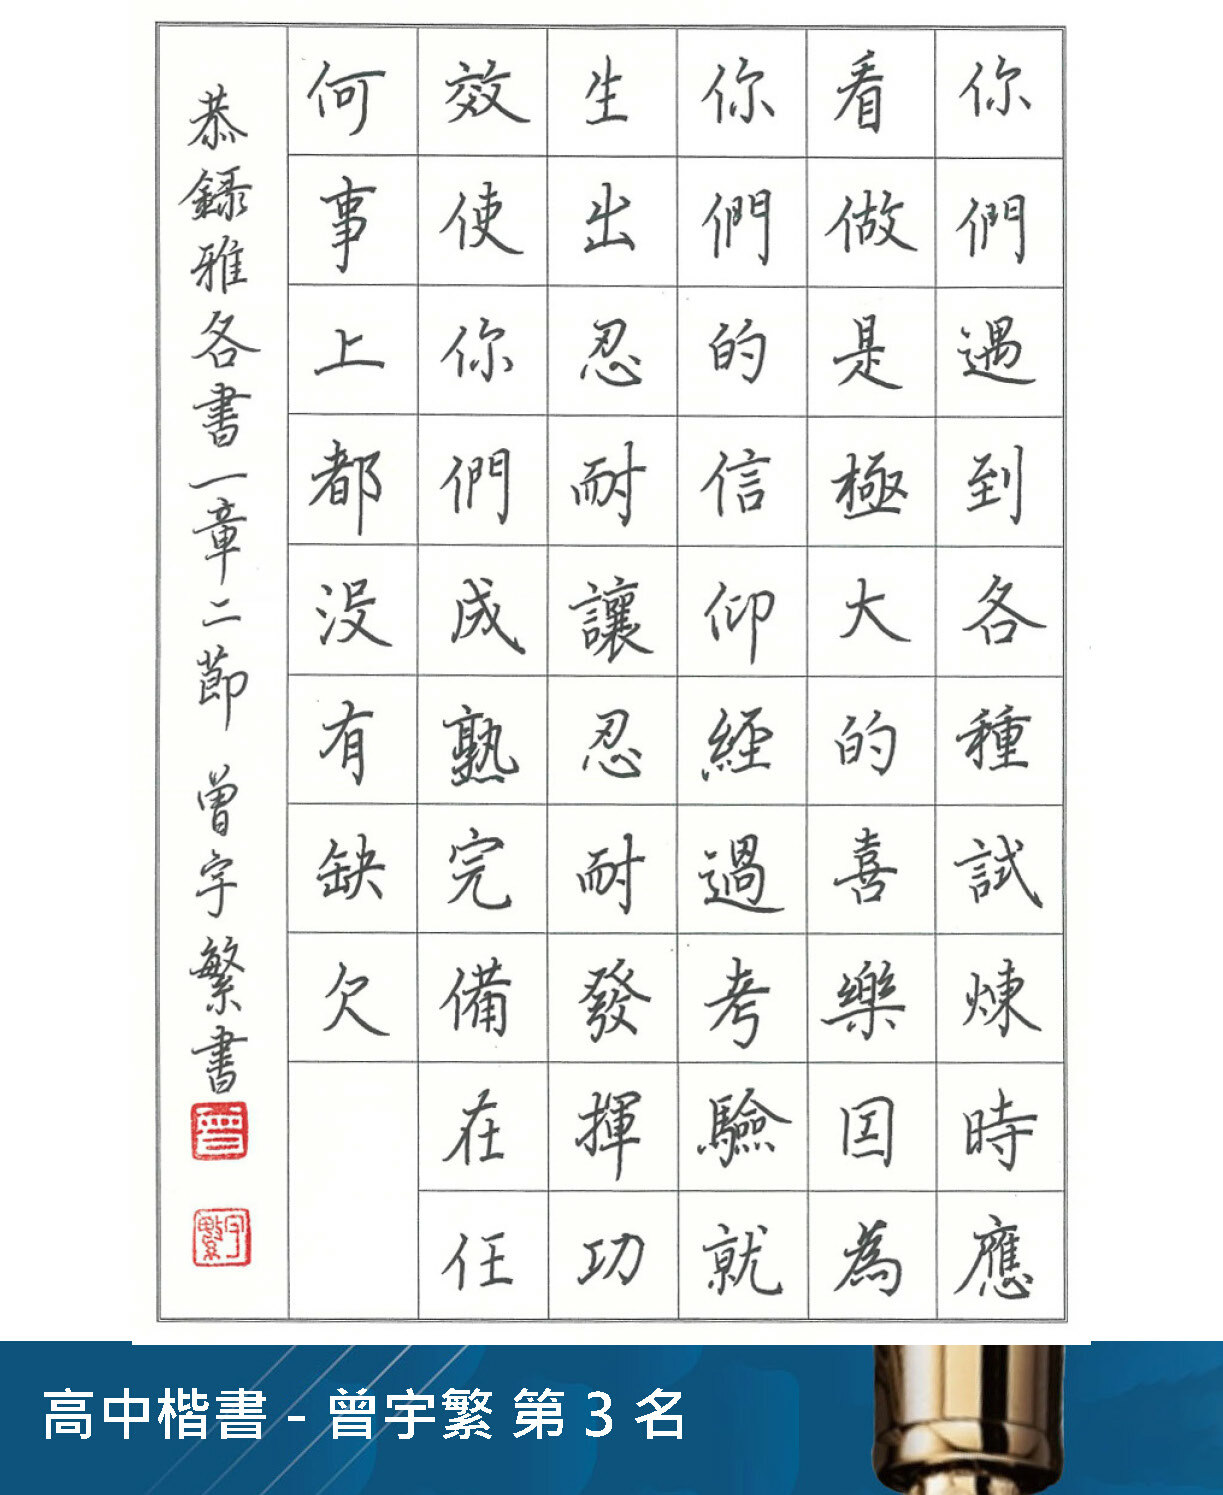 你們遇到各種試煉時應
看做是極大的喜樂因為
你們的信仰經過考驗就
生出忍耐讓忍耐發揮功
效使你們成熟完備在任
何事上都沒有缺欠
恭錄雅各書一章二節 曾宇繁書
曾
宇繁
高中楷書 - 曾宇繁 第 3 名